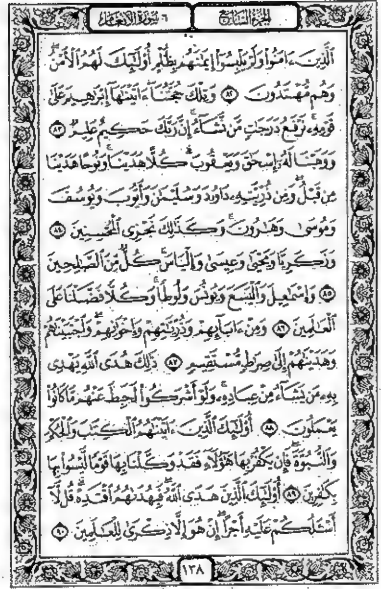 الجزء السابع
٦ سورة الأنعام
الَّذِينَ ءَامَنُوا وَلَمْ يَلْبِسُوا إِيمَٰنَهُم بِظُلْمٍ أُو۟لَٰٓئِكَ لَهُمُ الْأَمْنُ
وَهُم مُّهْتَدُونَ ٨٢ وَتِلْكَ حُجَّتُنَآ ءَاتَيْنَٰهَآ إِبْرَٰهِيمَ عَلَىٰ
قَوْمِهِۦ نَرْفَعُ دَرَجَٰتٍ مَّن نَّشَآءُ إِنَّ رَبَّكَ حَكِيمٌ عَلِيمٌ ٨٣
وَوَهَبْنَا لَهُۥٓ إِسْحَٰقَ وَيَعْقُوبَ كُلًّا هَدَيْنَا وَنُوحًا هَدَيْنَا
مِن قَبْلُ وَمِن ذُرِّيَّتِهِۦ دَاوُۥدَ وَسُلَيْمَٰنَ وَأَيُّوبَ وَيُوسُفَ
وَمُوسَىٰ وَهَٰرُونَ وَكَذَٰلِكَ نَجْزِى الْمُحْسِنِينَ ٨٤
وَزَكَرِيَّا وَيَحْيَىٰ وَعِيسَىٰ وَإِلْيَاسَ كُلٌّ مِّنَ الصَّٰلِحِينَ
٨٥ وَإِسْمَٰعِيلَ وَالْيَسَعَ وَيُونُسَ وَلُوطًا وَكُلًّا فَضَّلْنَا عَلَى
الْعَٰلَمِينَ ٨٦ وَمِنْ ءَابَآئِهِمْ وَذُرِّيَّٰتِهِمْ وَإِخْوَٰنِهِمْ وَاجْتَبَيْنَٰهُمْ
وَهَدَيْنَٰهُمْ إِلَىٰ صِرَٰطٍ مُّسْتَقِيمٍ ٨٧ ذَٰلِكَ هُدَى اللَّهِ يَهْدِى
بِهِۦ مَن يَشَآءُ مِنْ عِبَادِهِۦ وَلَوْ أَشْرَكُوا لَحَبِطَ عَنْهُم مَّا كَانُوا
يَعْمَلُونَ ٨٨ أُو۟لَٰٓئِكَ الَّذِينَ ءَاتَيْنَٰهُمُ الْكِتَٰبَ وَالْحُكْمَ
وَالنُّبُوَّةَ فَإِن يَكْفُرْ بِهَا هَٰٓؤُلَآءِ فَقَدْ وَكَّلْنَا بِهَا قَوْمًا لَّيْسُوا بِهَا
بِكَٰفِرِينَ ٨٩ أُو۟لَٰٓئِكَ الَّذِينَ هَدَى اللَّهُ فَبِهُدَىٰهُمُ اقْتَدِهْ قُل لَّآ
أَسْـَٔلُكُمْ عَلَيْهِ أَجْرًا إِنْ هُوَ إِلَّا ذِكْرَىٰ لِلْعَٰلَمِينَ ٩٠
١٣٨